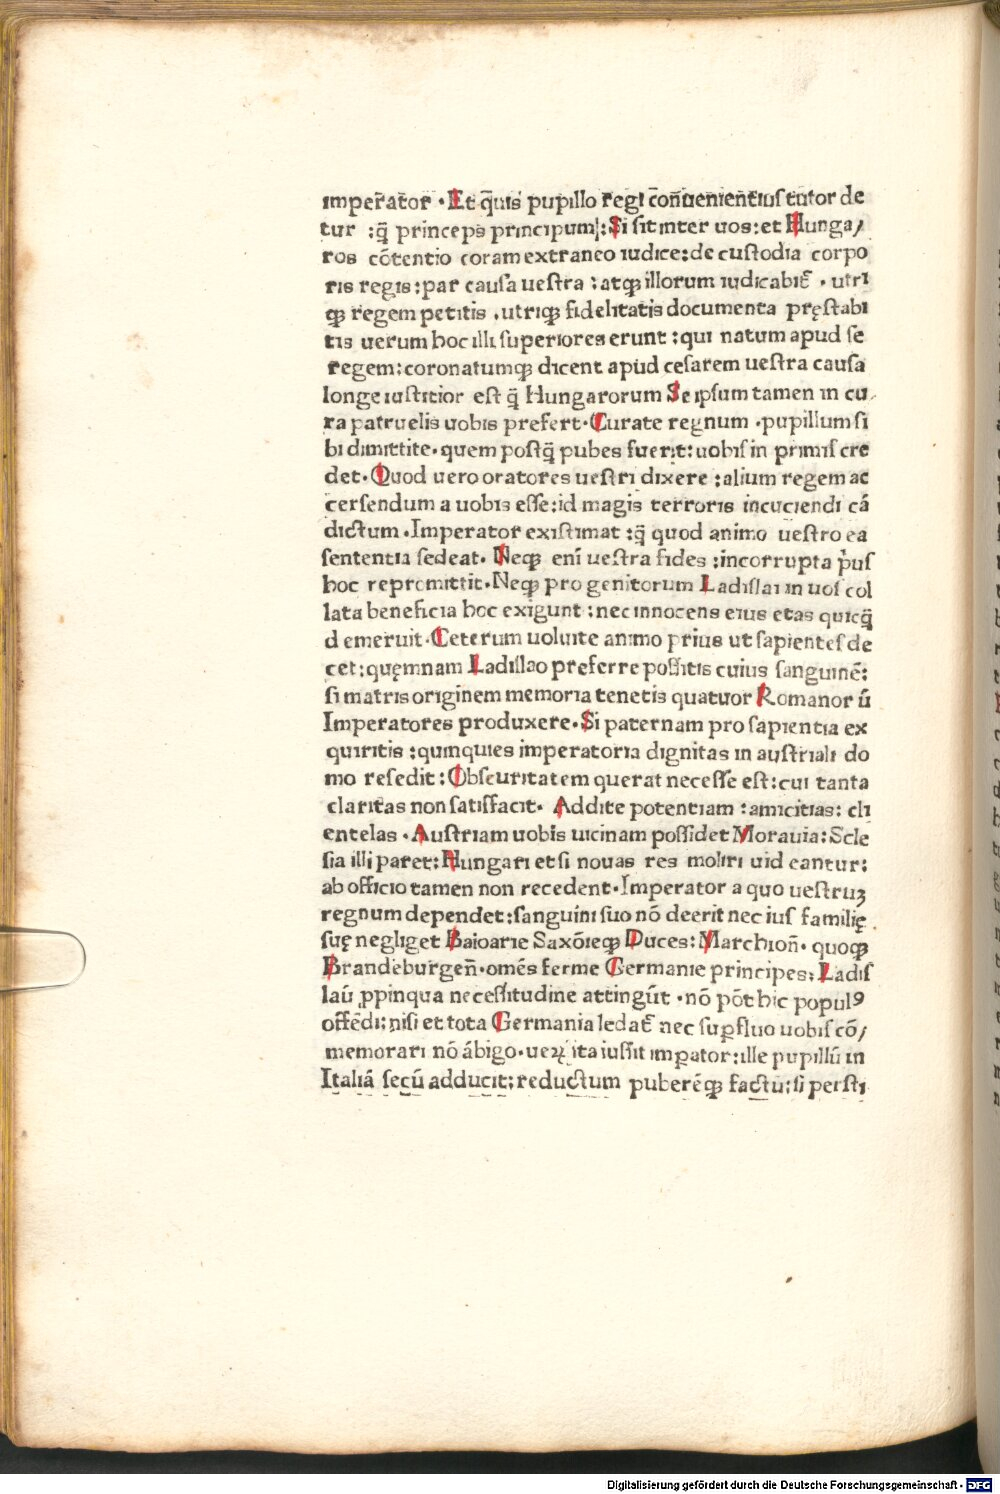 imper̃ator̃ . Et q̃uis pupillo regi cõnũenien̄tius tutor de
tur :q̃ princeps principum: Si sit inter uos: et Hunga/
ros cõtentio coram extraneo iudice: de custodia corpo
ris regis: par causa uestra : atqꝫ illorum iudicabit̃ . utri
qꝫ regem petitis . utriqꝫ fidelitatis documenta pręstabi
tis uerum hoc illi superiores erunt : qui natum apud se
regem: coronatumqꝫ dicent apud cesarem uestra causa
longe iustitior est q̃ Hungarorum Se ipsum tamen in cu
ra patruelis uobis prefert. Curate regnum . pupillum si
bi dimittite. quem postq̃ pubes fuerit: uobis in primis cre
det. Quod uero oratores uestri dixere : alium regem ac
cersendum a uobis esse: id magis terroris incuciendi cã
dictum . Imperator existimat :q̃ quod animo uestro ea
sententia sedeat. Neqꝫ eni uestra fides : incorrupta p̃us
hoc repromittit. Neqꝫ pro genitorum Ladislai in uos col
lata beneficia hoc exigunt : nec innocens eius etas quicq̃
d emeruit. Ceterum uoluite animo prius ut sapientes de
cet: quęmnam Ladislao preferre possitis cuius sanguinẽ:
si matris originem memoria tenetis quatuor Romanor ũ
Imperatores produxere. Si paternam pro sapientia ex
quiritis : quinquies imperatoria dignitas in australi do
mo resedit: Obscuritatem querat necesse est: cui tanta
claritas non satisfacit. Addite potentiam : amicitias: cli
entelas . Austriam uobis uicinam possidet Morauia: Scle
sia illi paret: Hungari et si nouas res moliri uid eantur:
ab officio tamen non recedent. Imperator a quo uestruꝫ
regnum dependet: sanguini suo nõ deerit nec ius familię
suę negliget Baioarie Saxõieqꝫ Duces: Marchion̄. quoqꝫ
Brandeburgen̄. om̃es ferme Germanie principes: Ladis
laũ ꝓpinqua necessitudine attingũt . nõ põt hic popul9
offẽdi: nisi et tota Germania ledat̃ nec suꝑfluo uobis cõ/
memorari nõ ãbigo. ueꝝ ita iussit imꝑator: ille pupillũ in
Italiã secũ adducit: reductum puberẽqꝫ factũ: si persti
Digitalisierung gefördert durch die Deutsche Forschungsgemeinschaft - DFG